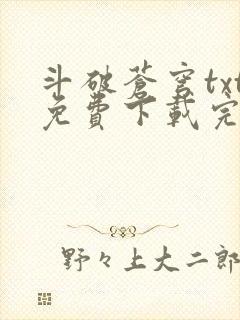 斗破蒼穹txt
免費下載完
野々上大二郎